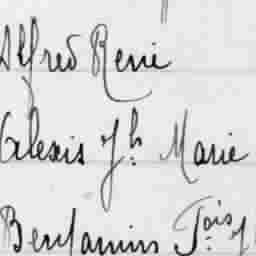 Alfred René
Alexis Jh. Marie
Benjamin Fois J